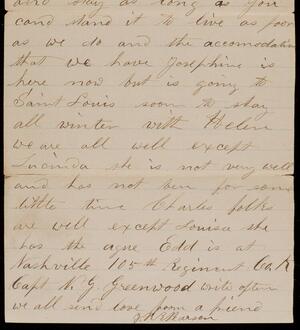 and stay as long as you
cand stand it to live as poor
as we do and the accomodation
that we have Josephine is
here now but is going to
Saint Louis soon to stay
all winter with Helen
we are all well except
Lucinda she is not very well
and has not ben for some
little time Charles folks
are well except Louisa she
has the ague Edd is at
Nashville 105th Regiment Co. K
Capt W. G. Greenwood write often
we all send love from a friend